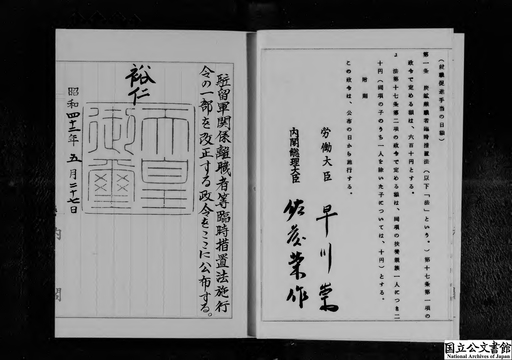 駐留軍関係離職者等臨時措置法施行
令の一部を改正する政令をここに公布する。
裕仁
天皇
御璽
昭和四十三年五月二十七日
内閣
(就職促進手当の日額)
第一条 炭鉱離職者臨時措置法(以下「法」という。)第十七条第一項の
政令で定める額は、六百十円とする。
2 法第十七条第二項の政令で定める額は、同項の扶養親族一人につき二
十円(同項の子のうち一人を除いた子については、十円)とする。
附則
この政令は、公布の日から施行する。
労働大臣 早川崇
内閣総理大臣 佐藤栄作
国立公文書館
National Archives of Japan